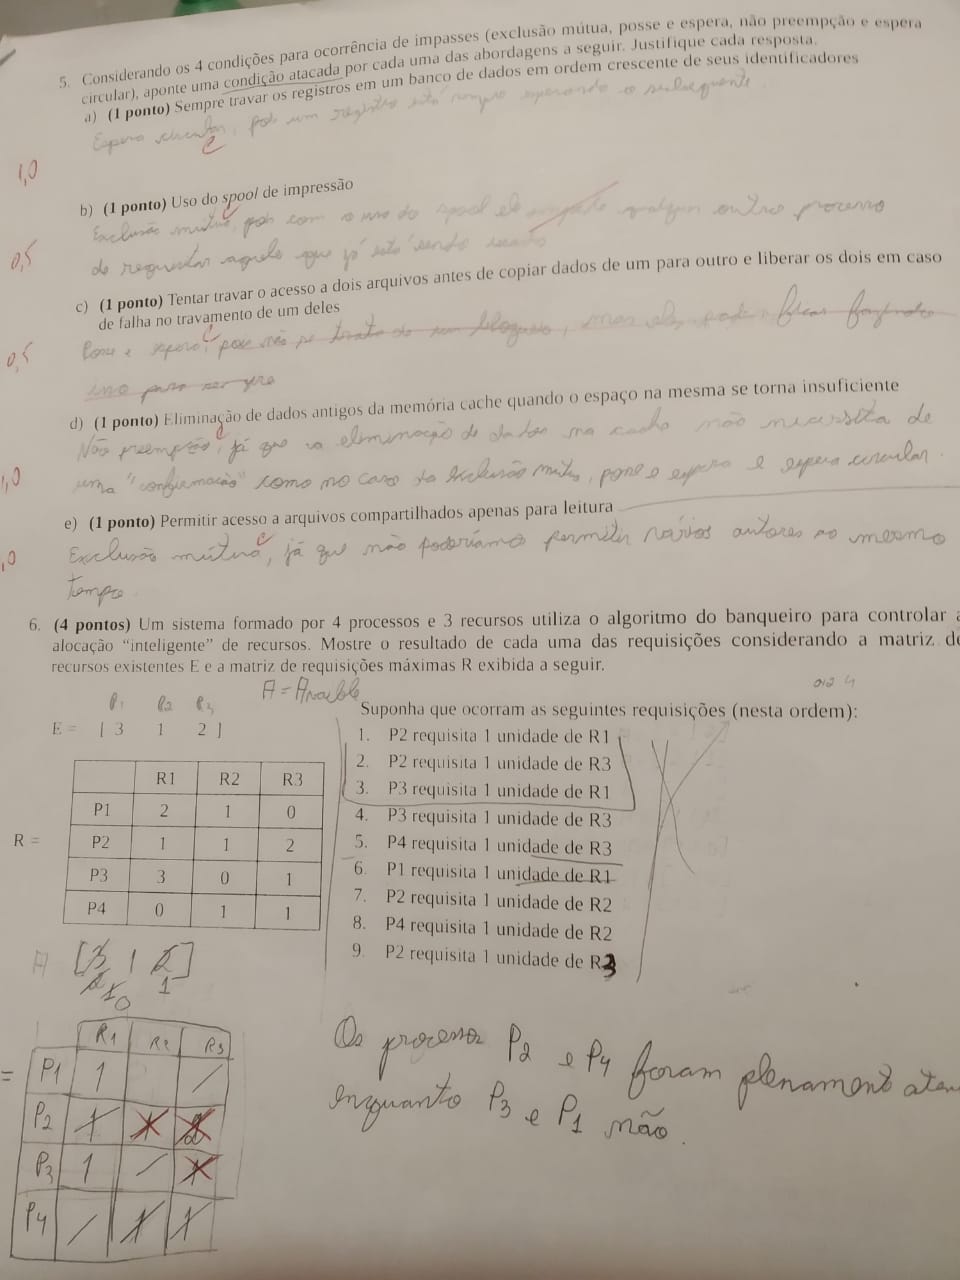 5. Considerando os 4 condições para ocorrência de impasses (exclusão mútua, posse e espera, não preempção e espera
circular), aponte uma condição atacada por cada uma das abordagens a seguir. Justifique cada resposta.
a) (1 ponto) Sempre travar os registros em um banco de dados em ordem crescente de seus identificadores
Espera circular, pois um registro está sempre esperando o subsequente.
c
1,0
b) (1 ponto) Uso do spool de impressão
c
Exclusão mútua, pois com o uso do spool ele qualquer outro processo
0,5
de requisitar aquele que já está sendo usado
c) (1 ponto) Tentar travar o acesso a dois arquivos antes de copiar dados de um para outro e liberar os dois em caso
de falha no travamento de um deles
c
0,5
Posse e espera, pois não se trata de um bloqueio, mas eles podem ficar fazendo
isso para sempre
d) (1 ponto) Eliminação de dados antigos da memória cache quando o espaço na mesma se torna insuficiente
c
Não preempção, já que a eliminação de dados na cache não necessita de
1,0
uma "confirmação" como no caso da exclusão mútua, posse e espera e espera circular.
e) (1 ponto) Permitir acesso a arquivos compartilhados apenas para leitura
c
,0
Exclusão mútua, já que não poderíamos permitir vários autores ao mesmo
tempo
6. (4 pontos) Um sistema formado por 4 processos e 3 recursos utiliza o algoritmo do banqueiro para controlar a
alocação “inteligente” de recursos. Mostre o resultado de cada uma das requisições considerando a matriz de
recursos existentes E e a matriz de requisições máximas R exibida a seguir.
R1 R2 R3
A = Available
E = [ 3 1 2 ]
Suponha que ocorram as seguintes requisições (nesta ordem):
1. P2 requisita 1 unidade de R1
2. P2 requisita 1 unidade de R3
3. P3 requisita 1 unidade de R1
4. P3 requisita 1 unidade de R3
5. P4 requisita 1 unidade de R3
6. P1 requisita 1 unidade de R1
7. P2 requisita 1 unidade de R2
8. P4 requisita 1 unidade de R2
9. P2 requisita 1 unidade de R3
R =
R1 R2 R3
P1 2 1 0
P2 1 1 2
P3 3 0 1
P4 0 1 1
A [3 1 2]
2 1 0 1
R1 R2 R3
=
P1 1 /
P2 1 1 2
P3 1 / 1
P4 / 1 1
Os processos P2 e P4 foram plenamente
enquanto P3 e P1 não.